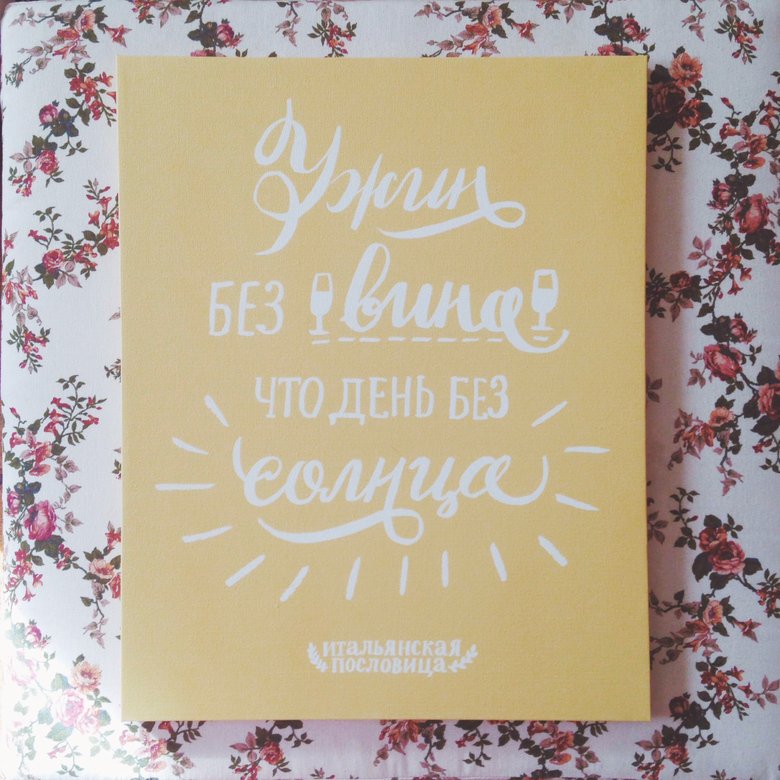 Ужин
БЕЗ вина
ЧТО ДЕНЬ БЕЗ
солнца
ИТАЛЬЯНСКАЯ
ПОСЛОВИЦА